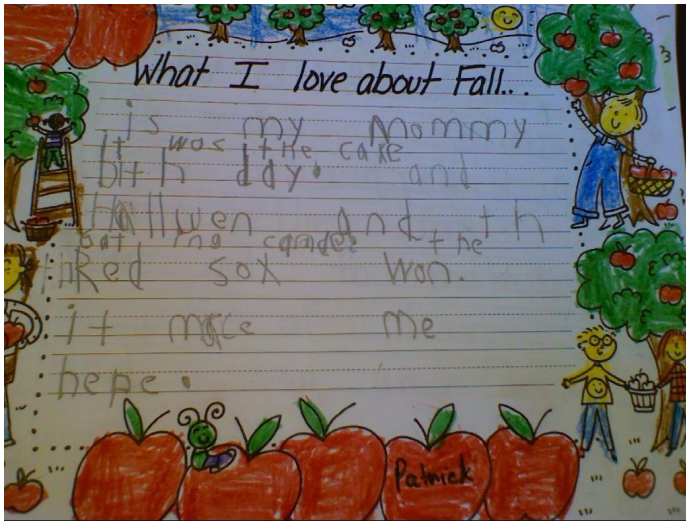 What I love about Fall...
is my Mommy
It was the cake
bith day. and
Hallwen and th
the
Red sox won.
it mace me
hepe.
Patrick